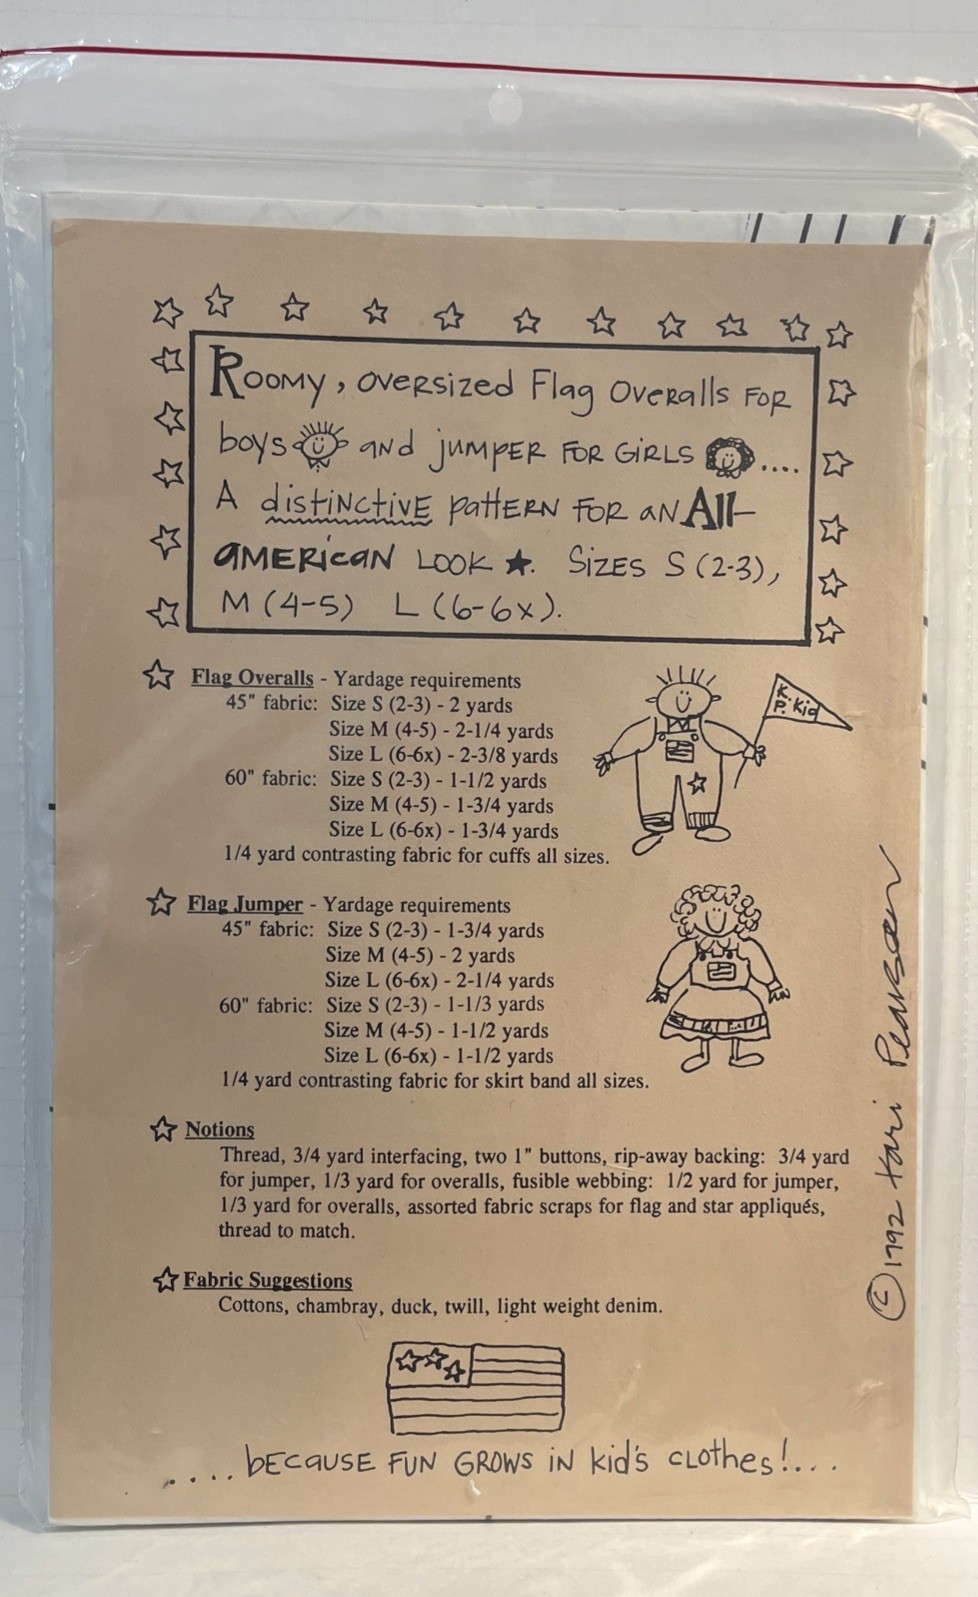 Roomy, oversized Flag Overalls for
boys and jumper for girls ....
A distinctive pattern for an All-
american look ★. Sizes S (2-3),
M (4-5) L (6-6x).
Flag Overalls - Yardage requirements
45" fabric: Size S (2-3) - 2 yards
Size M (4-5) - 2-1/4 yards
Size L (6-6x) - 2-3/8 yards
60" fabric: Size S (2-3) - 1-1/2 yards
Size M (4-5) - 1-3/4 yards
Size L (6-6x) - 1-3/4 yards
1/4 yard contrasting fabric for cuffs all sizes.
K.
P. Kid
Flag Jumper - Yardage requirements
45" fabric: Size S (2-3) - 1-3/4 yards
Size M (4-5) - 2 yards
Size L (6-6x) - 2-1/4 yards
60" fabric: Size S (2-3) - 1-1/3 yards
Size M (4-5) - 1-1/2 yards
Size L (6-6x) - 1-1/2 yards
1/4 yard contrasting fabric for skirt band all sizes.
Notions
Thread, 3/4 yard interfacing, two 1" buttons, rip-away backing: 3/4 yard
for jumper, 1/3 yard for overalls, fusible webbing: 1/2 yard for jumper,
1/3 yard for overalls, assorted fabric scraps for flag and star appliqués,
thread to match.
Fabric Suggestions
Cottons, chambray, duck, twill, light weight denim.
.... because fun grows in kid's clothes!....
© 1992 Kari Pearson